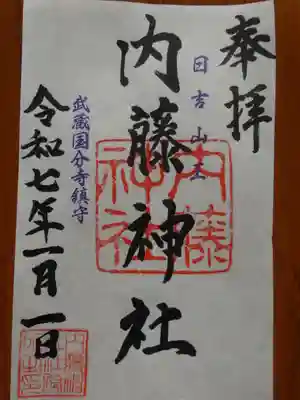 奉拝
日吉山王
内藤神社
内藤神社
武蔵国分寺鎮守
令和七年一月一日